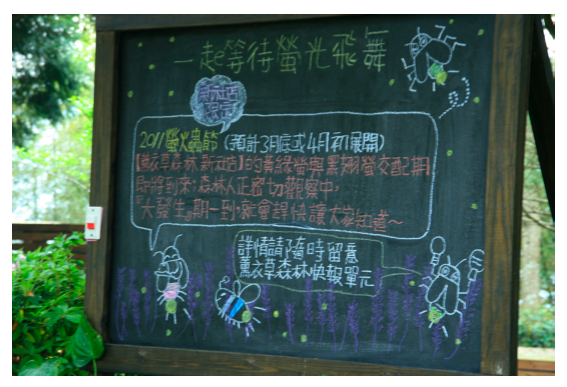 一起等待螢光飛舞
新社店
限定
2011螢火蟲節(預計3月底或4月初展開)
【薰衣草森林新社店】的黃緣螢與黑翅螢交配期
即將到來,森林人正密切觀察中,
『大發生』期一到,就會趕快讓大家知道~
詳情請隨時留意
薰衣草森林快報單元